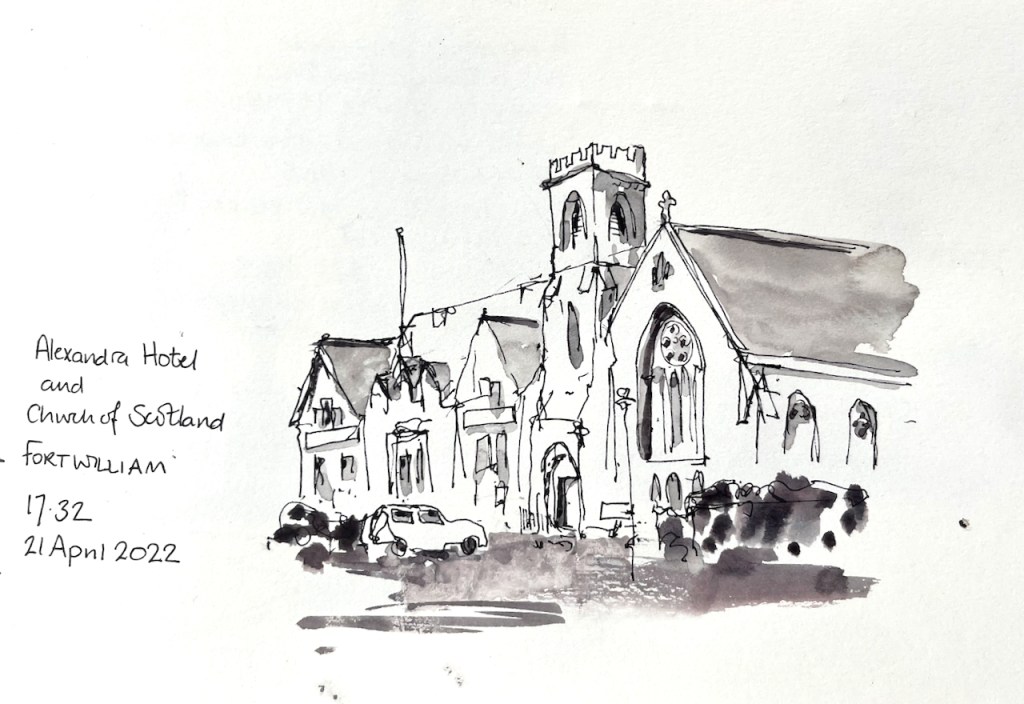 Alexandra Hotel
and
Church of Scotland
FORT WILLIAM
17.32
21 April 2022